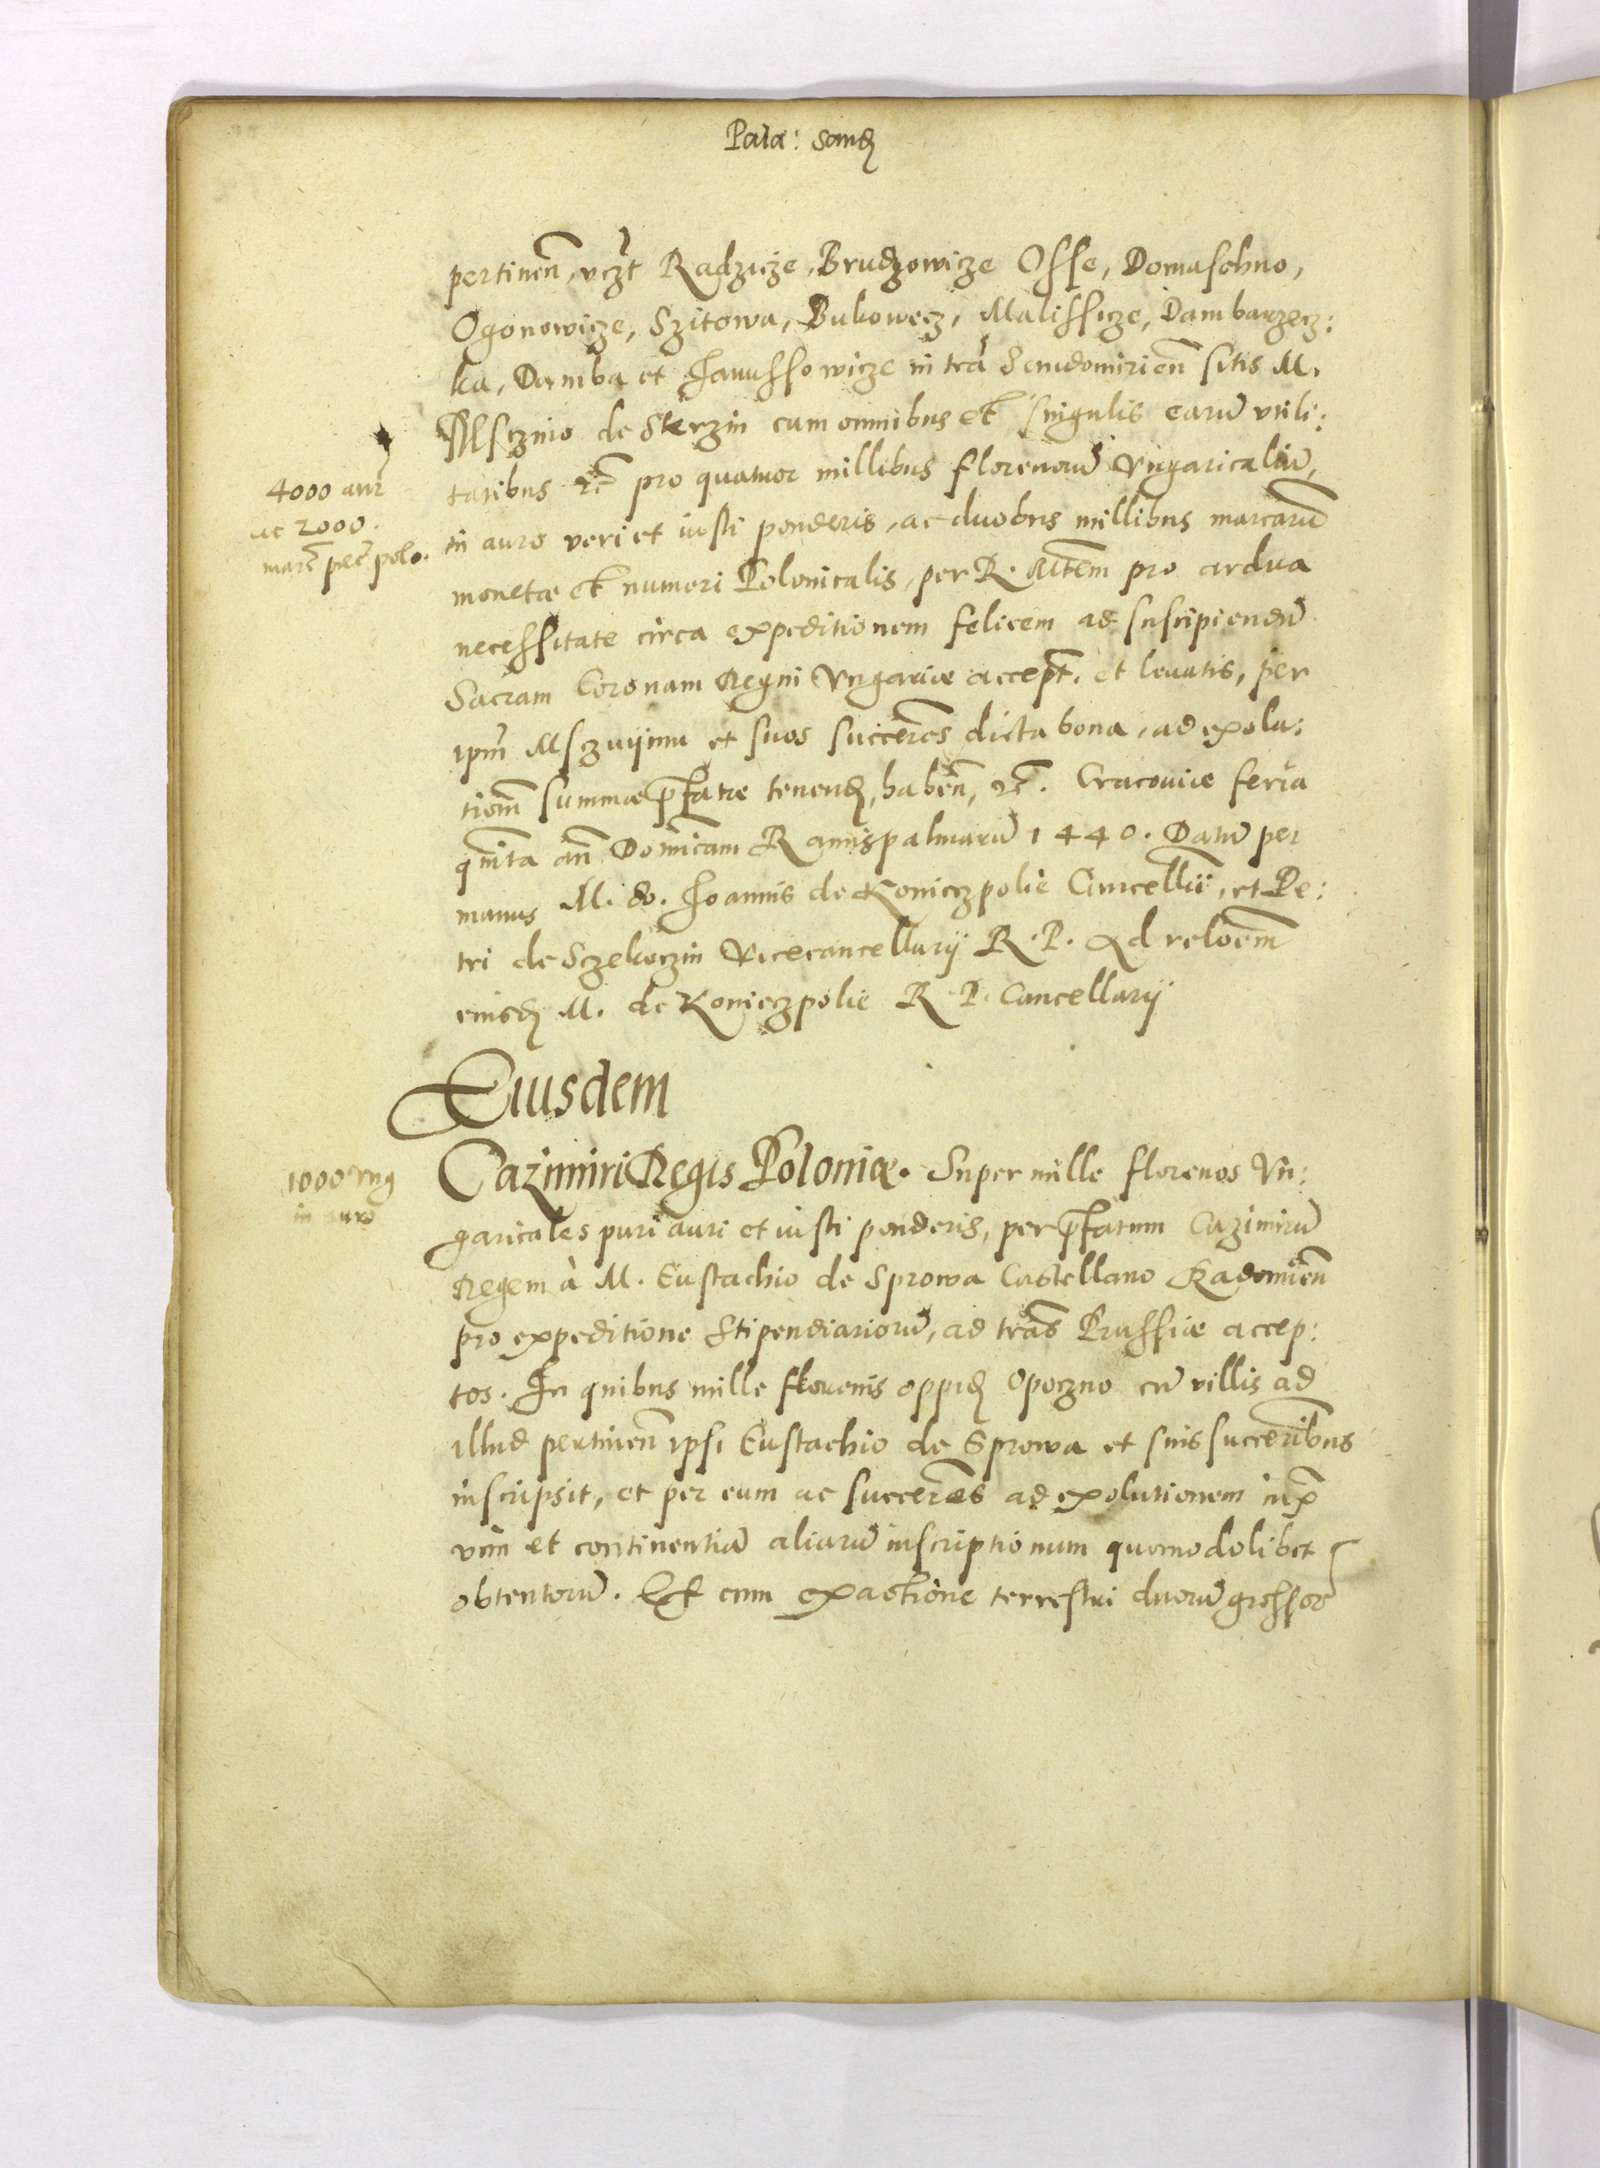 Pala: Sand
pertinen, vczt Radzicze, Brudzowicze Osse, Domaschno,
Ogonowicze, Szitowa, Bukowecz, Malissicze, Dambarzecz:
ka, Damba et Janussowicze in tra Sendomirien sitis M.
Msczuio de Skrzin cum omnibus et singulis earū vtili:
tatibus etc pro quatuor millibus florenorū Vngaricaliū,
in auro veri et iusti ponderis, ac duobus millibus marcarū
monetæ et numeri Polonicalis, per R. Mtem pro ardua
necessitate circa expeditionem felicem ad suscipiendū
Sacram Coronam Regni Vngariæ accept. et leuatis, per
ipm Msczuijum et suos succeres dicta bona, ad exolu:
tiom summæ pfatæ tenend, haben, etc. Cracouiæ feria
quinta an Dominicam Ramispalmarū 1440. Datū per
manus M. do. Joannis de Konieczpolie Cancellii, et Pe:
tri de Sczekoczin Vicecancellarij R. P. Ad reloem
eiusd M. de Konieczpolie R. P. Cancellarij
4000 aur
ac 2000.
marc pec polo.
Eiusdem
Cazimiri Regis Poloniæ. Super mille florenos Vn:
garicales puri auri et iusti ponderis, per pfatum Cazimirū
Regem à M. Eustachio de Sprowa Castellano Radomien
pro expeditione Stipendiariorū, ad tras Prussiæ accep:
tos. In quibus mille florenis oppid Opoczno cū villis ad
illud pertinen ipsi Eustachio de Sprowa et suis succeribus
inscripsit, et per eum ac succeres ad exolutionem iux
vim et continentiā aliarū inscriptionum quomodolibet
obtentorū. Et cum exactione terrestri duorū grossor
1000 vng
in auro